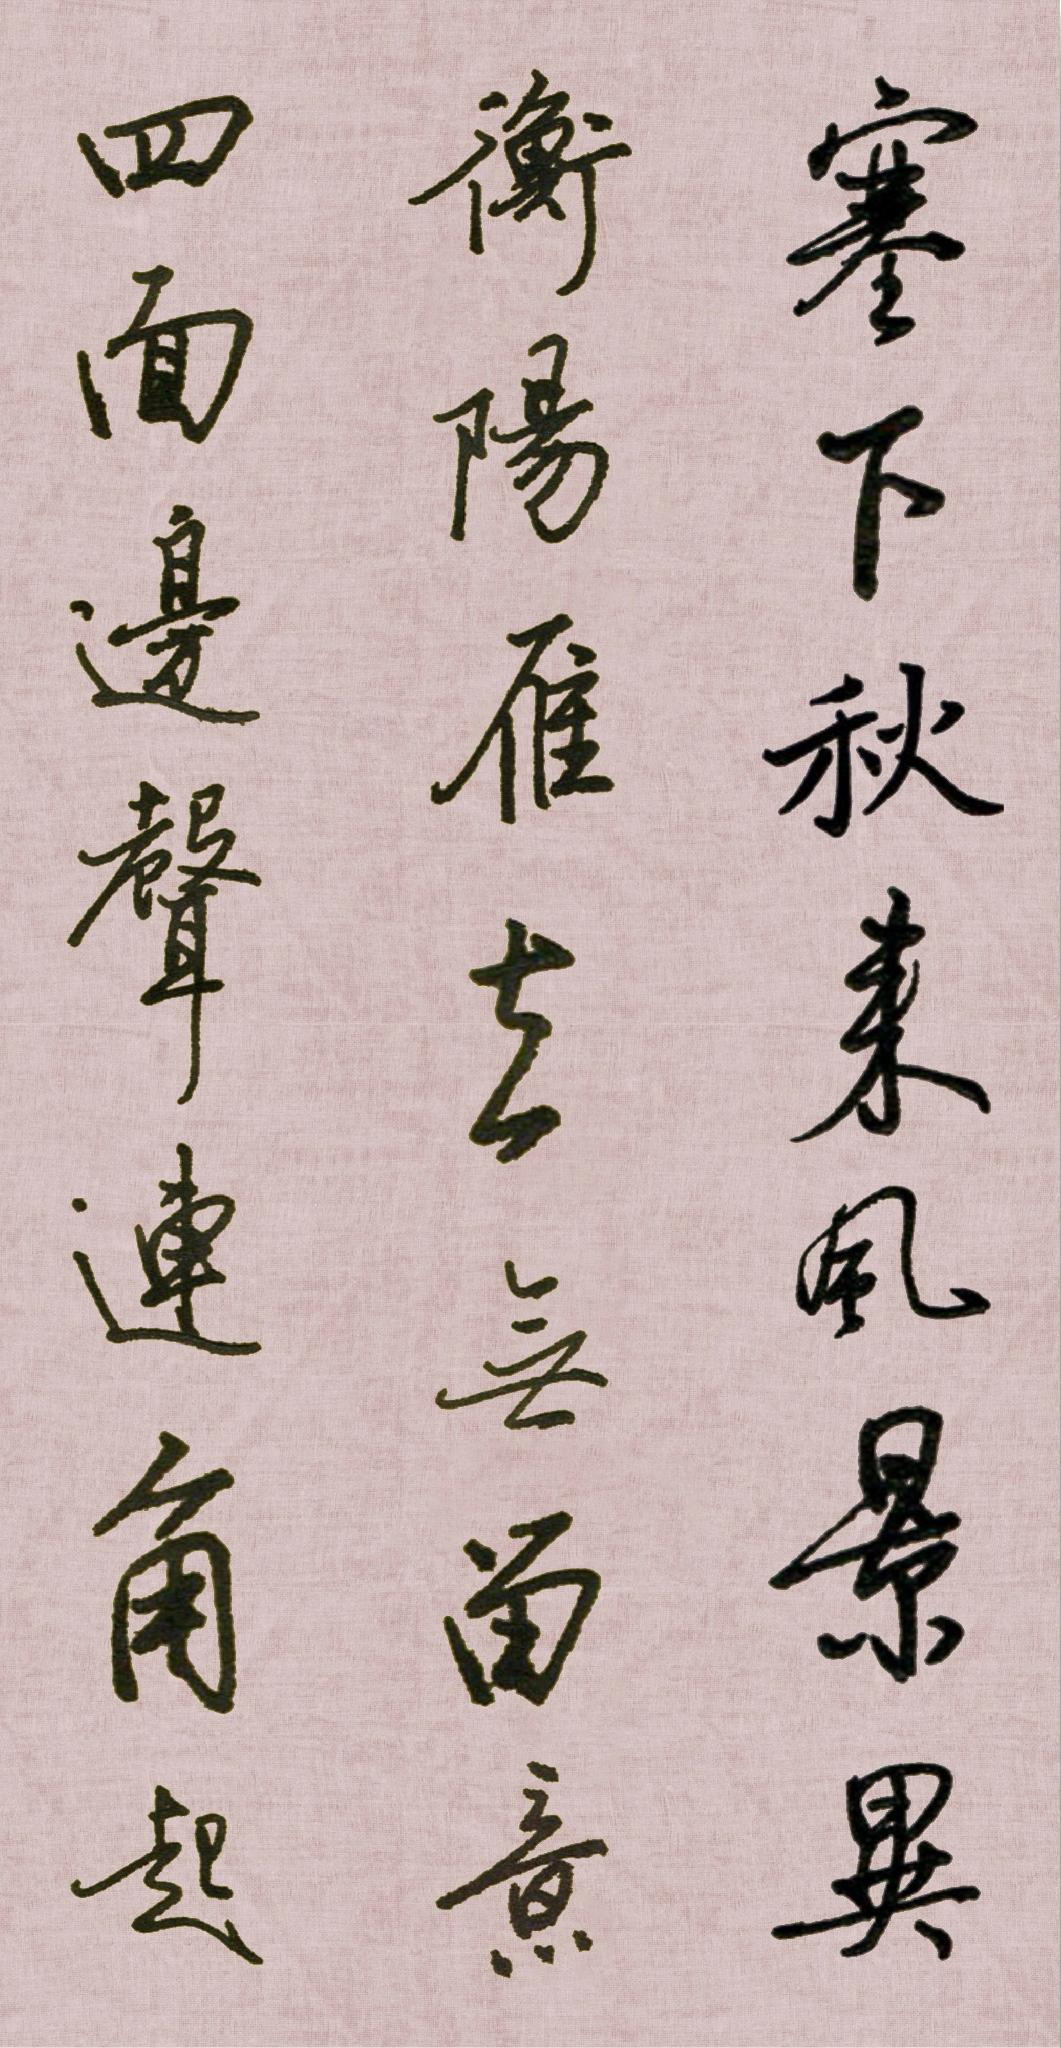 塞下秋来風景異
衡陽雁去無留意
四面邊聲連角起